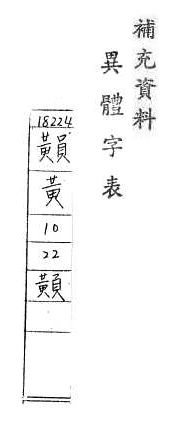 補充資料
異體字表
18224
黃
10
22